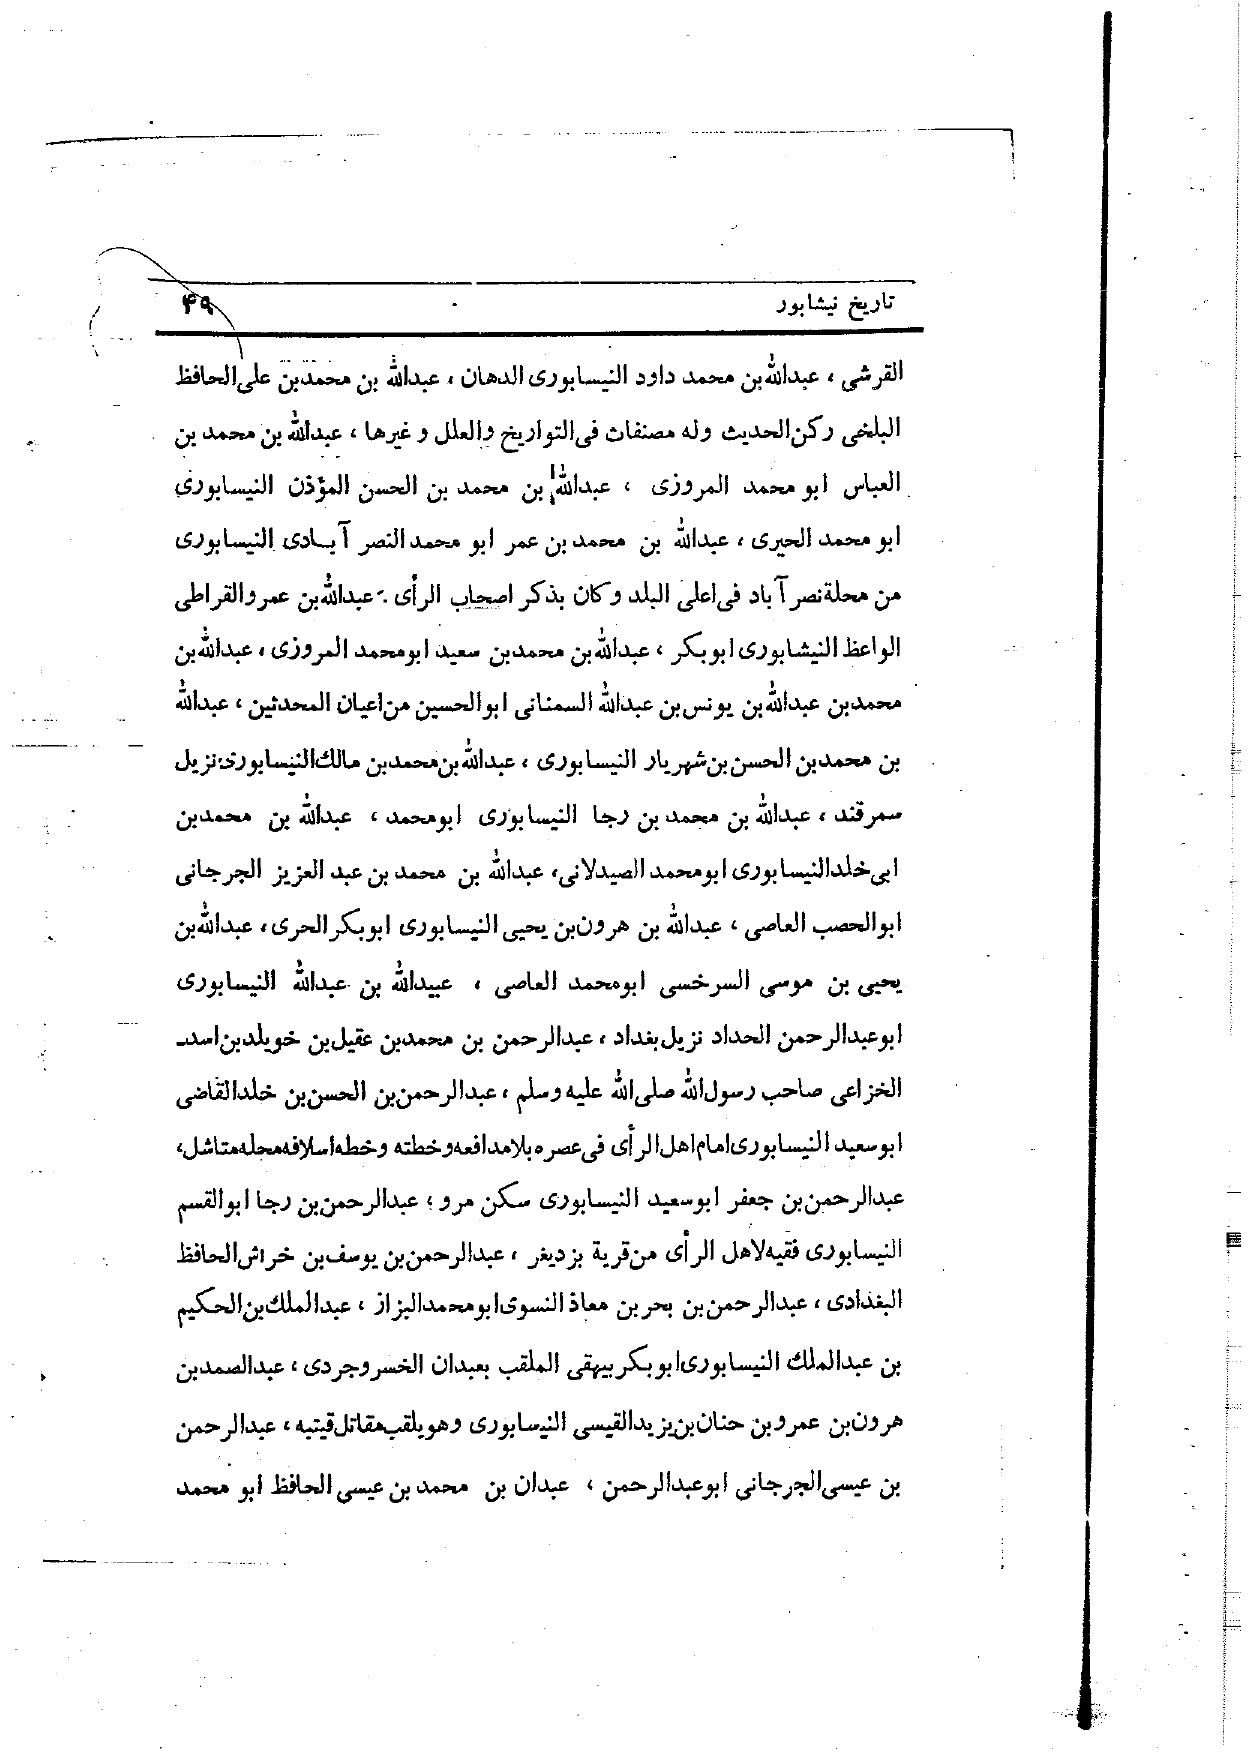 تاریخ نیشابور
۴۹
القرشی ، عبدالله‌بن محمد داود النیسابوری الدهان ، عبدالله بن محمدبن علی‌الحافظ
البلخی رکن‌الحدیث وله مصنفات فی‌التواریخ والعلل و غیرها ، عبدالله بن محمد بن
العباس ابو محمد المروزی ، عبدالله بن محمد بن الحسن المؤذن النیسابوری
ابو محمد الحیری ، عبدالله بن محمد بن عمر ابو محمد النصر آبادی النیسابوری
من محلة نصر آباد فی‌اعلی البلد وکان بذکر اصحاب الرأی . عبدالله‌بن عمرو القراطی
الواعظ النیشابوری ابوبکر ، عبدالله‌بن محمدبن سعید ابومحمد المروزی ، عبدالله‌بن
محمدبن عبدالله‌بن یونس‌بن عبدالله السمنانی ابوالحسین من‌اعیان المحدثین ، عبدالله
بن محمدبن الحسن‌بن‌شهریار النیسابوری ، عبدالله‌بن‌محمدبن مالك‌النیسابوری نزیل
سمرقند ، عبدالله بن محمد بن رجا النیسابوری ابومحمد ، عبدالله بن محمدبن
ابی‌خلدالنیسابوری ابومحمد الصیدلانی، عبدالله بن محمد بن عبد العزیز الجرجانی
ابوالحصب العاصی ، عبدالله بن هرون‌بن یحیی النیسابوری ابوبکر الحری، عبدالله‌بن
یحیی بن موسی السرخسی ابومحمد العاصی ، عبیدالله بن عبدالله النیسابوری
ابوعبدالرحمن الحداد نزیل‌بغداد ، عبدالرحمن بن محمدبن عقیل‌بن خویلدبن‌اسد
الخزاعی صاحب رسول‌الله صلی‌الله علیه وسلم ، عبدالرحمن‌بن الحسن‌بن خلدالقاضی
ابوسعید النیسابوری‌امام‌اهل‌الرأی فی‌عصره بلامدافعه‌وخطته وخطه‌اسلافه‌محله‌متاشل،
عبدالرحمن‌بن جعفر ابوسعید النیسابوری سکن مرو ؛ عبدالرحمن‌بن رجا ابوالقسم
النیسابوری فقیه‌لاهل الرأی من‌قریة بزدیغر ، عبدالرحمن‌بن یوسف‌بن خراش‌الحافظ
البغدادی ، عبدالرحمن‌بن بحربن معاذ النسوی‌ابومحمدالبزاز ، عبدالملك‌بن‌الحکیم
بن عبدالملك النیسابوری‌ابوبکر بیهقی الملقب بعبدان الخسروجردی ، عبدالصمدبن
هرون‌بن عمروبن حنان‌بن‌یزیدالقیسی النیسابوری وهویلقب‌مقاتل‌قیتیه ، عبدالرحمن
بن عیسی‌الجرجانی ابوعبدالرحمن ، عبدان بن محمد بن عیسی الحافظ ابو محمد